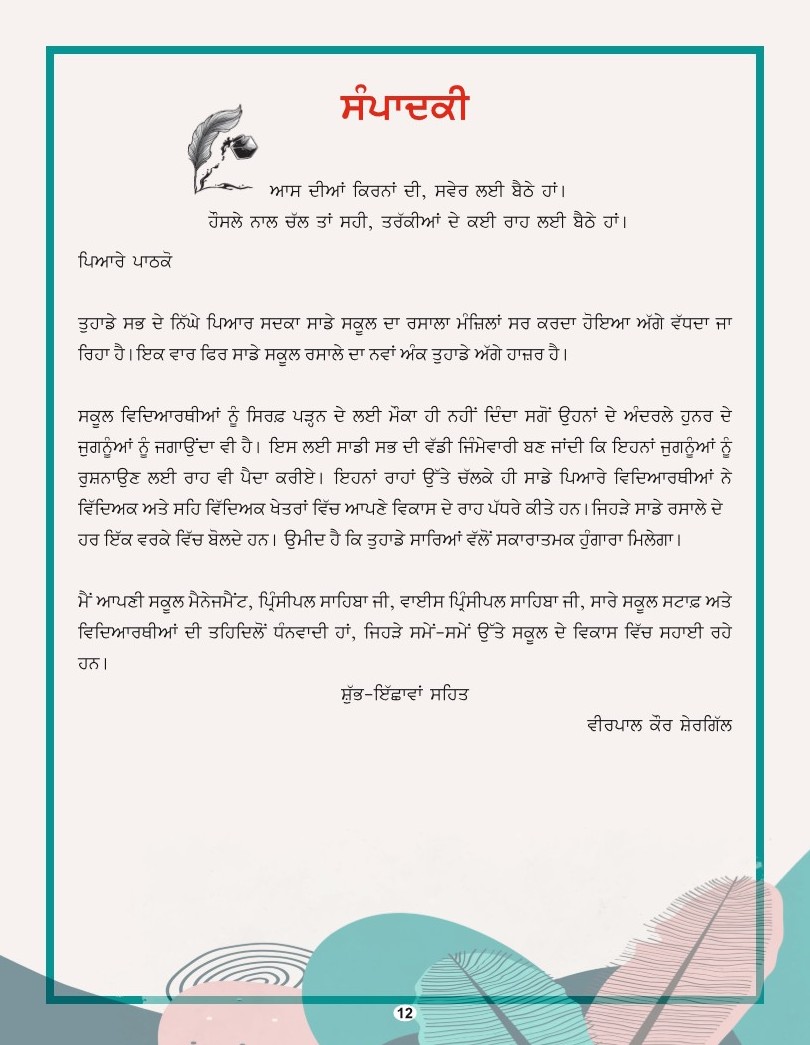 ਸੰਪਾਦਕੀ
ਆਸ ਦੀਆਂ ਕਿਰਨਾਂ ਦੀ, ਸਵੇਰ ਲਈ ਬੈਠੇ ਹਾਂ।
ਹੌਸਲੇ ਨਾਲ ਚੱਲ ਤਾਂ ਸਹੀ, ਤਰੱਕੀਆਂ ਦੇ ਕਈ ਰਾਹ ਲਈ ਬੈਠੇ ਹਾਂ।
ਪਿਆਰੇ ਪਾਠਕੋ
ਤੁਹਾਡੇ ਸਭ ਦੇ ਨਿੱਘੇ ਪਿਆਰ ਸਦਕਾ ਸਾਡੇ ਸਕੂਲ ਦਾ ਰਸਾਲਾ ਮੰਜ਼ਿਲਾਂ ਸਰ ਕਰਦਾ ਹੋਇਆ ਅੱਗੇ ਵੱਧਦਾ ਜਾ
ਰਿਹਾ ਹੈ। ਇਕ ਵਾਰ ਫਿਰ ਸਾਡੇ ਸਕੂਲ ਰਸਾਲੇ ਦਾ ਨਵਾਂ ਅੰਕ ਤੁਹਾਡੇ ਅੱਗੇ ਹਾਜ਼ਰ ਹੈ।
ਸਕੂਲ ਵਿਦਿਆਰਥੀਆਂ ਨੂੰ ਸਿਰਫ਼ ਪੜ੍ਹਨ ਦੇ ਲਈ ਮੌਕਾ ਹੀ ਨਹੀਂ ਦਿੰਦਾ ਸਗੋਂ ਉਹਨਾਂ ਦੇ ਅੰਦਰਲੇ ਹੁਨਰ ਦੇ
ਜੁਗਨੂੰਆਂ ਨੂੰ ਜਗਾਉਂਦਾ ਵੀ ਹੈ। ਇਸ ਲਈ ਸਾਡੀ ਸਭ ਦੀ ਵੱਡੀ ਜਿੰਮੇਵਾਰੀ ਬਣ ਜਾਂਦੀ ਕਿ ਇਹਨਾਂ ਜੁਗਨੂੰਆਂ ਨੂੰ
ਰੁਸ਼ਨਾਉਣ ਲਈ ਰਾਹ ਵੀ ਪੈਦਾ ਕਰੀਏ। ਇਹਨਾਂ ਰਾਹਾਂ ਉੱਤੇ ਚੱਲਕੇ ਹੀ ਸਾਡੇ ਪਿਆਰੇ ਵਿਦਿਆਰਥੀਆਂ ਨੇ
ਵਿੱਦਿਅਕ ਅਤੇ ਸਹਿ ਵਿੱਦਿਅਕ ਖੇਤਰਾਂ ਵਿੱਚ ਆਪਣੇ ਵਿਕਾਸ ਦੇ ਰਾਹ ਪੱਧਰੇ ਕੀਤੇ ਹਨ। ਜਿਹੜੇ ਸਾਡੇ ਰਸਾਲੇ ਦੇ
ਹਰ ਇੱਕ ਵਰਕੇ ਵਿੱਚ ਬੋਲਦੇ ਹਨ। ਉਮੀਦ ਹੈ ਕਿ ਤੁਹਾਡੇ ਸਾਰਿਆਂ ਵੱਲੋਂ ਸਕਾਰਾਤਮਕ ਹੁੰਗਾਰਾ ਮਿਲੇਗਾ।
ਮੈਂ ਆਪਣੀ ਸਕੂਲ ਮੈਨੇਜਮੈਂਟ, ਪ੍ਰਿੰਸੀਪਲ ਸਾਹਿਬਾ ਜੀ, ਵਾਈਸ ਪ੍ਰਿੰਸੀਪਲ ਸਾਹਿਬਾ ਜੀ, ਸਾਰੇ ਸਕੂਲ ਸਟਾਫ਼ ਅਤੇ
ਵਿਦਿਆਰਥੀਆਂ ਦੀ ਤਹਿਦਿਲੋਂ ਧੰਨਵਾਦੀ ਹਾਂ, ਜਿਹੜੇ ਸਮੇਂ-ਸਮੇਂ ਉੱਤੇ ਸਕੂਲ ਦੇ ਵਿਕਾਸ ਵਿੱਚ ਸਹਾਈ ਰਹੇ
ਹਨ।
ਸ਼ੁੱਭ-ਇੱਛਾਵਾਂ ਸਹਿਤ
ਵੀਰਪਾਲ ਕੌਰ ਸ਼ੇਰਗਿੱਲ
12